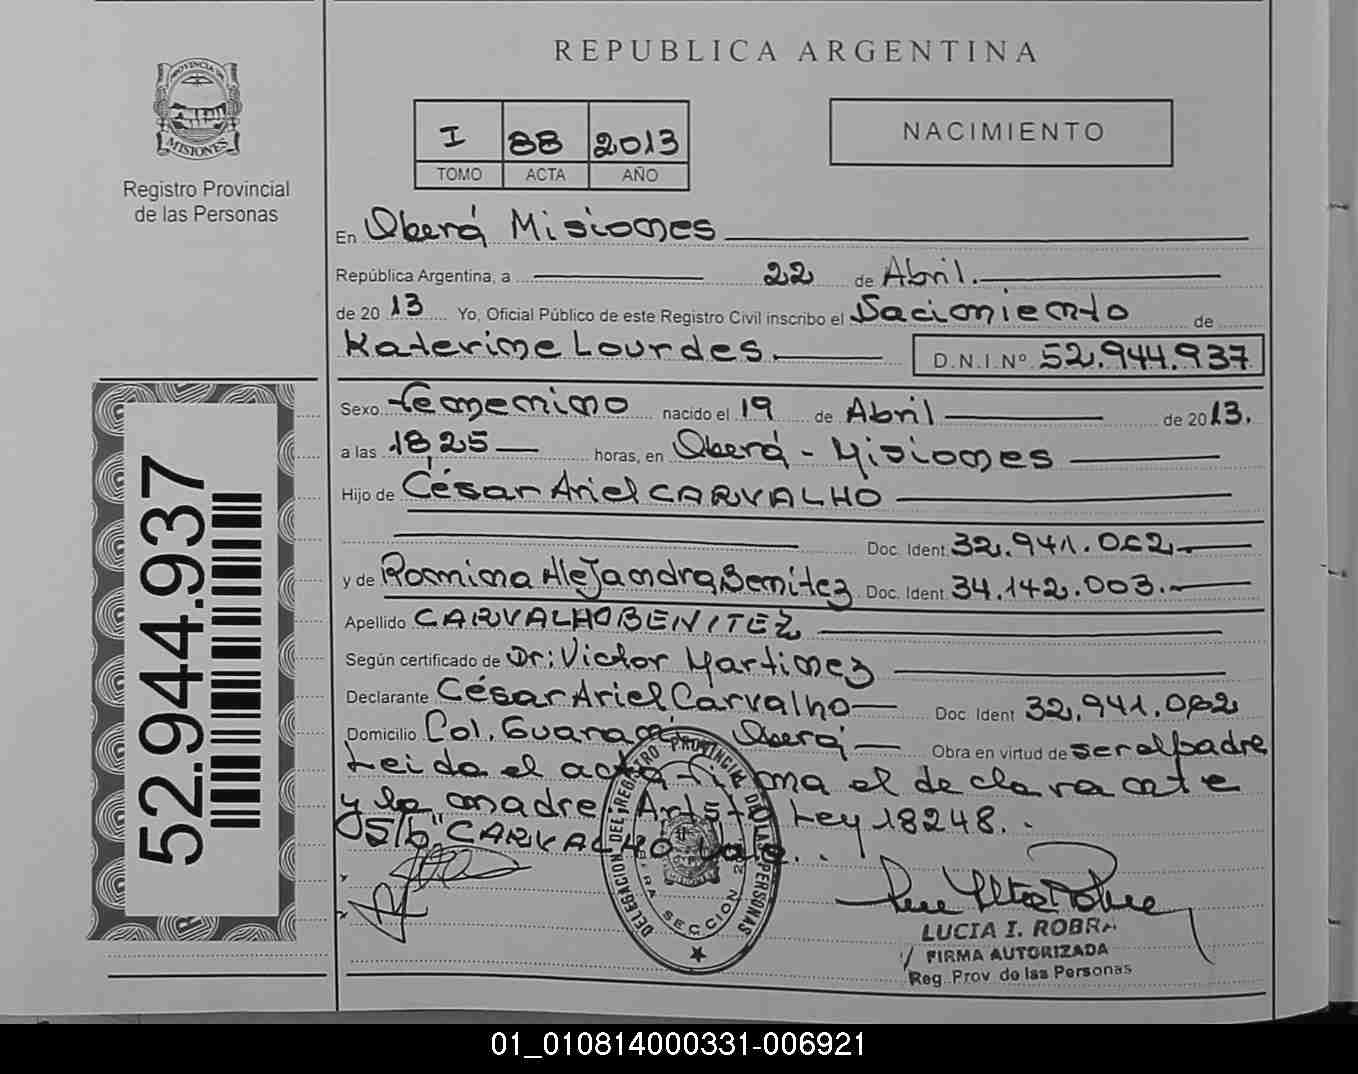 PROVINCIA DE
MISIONES
Registro Provincial
de las Personas
REPUBLICA ARGENTINA
I 88 2013
TOMO ACTA AÑO
NACIMIENTO
En Oberá Misiones
República Argentina, a 22 de Abril.
de 20 13 Yo, Oficial Público de este Registro Civil inscribo el Nacimiento de
Katerine Lourdes. D.N.I.Nº 52.944.937
Sexo femenino nacido el 19 de Abril de 2013.
a las 18,25 horas, en Oberá - Misiones
Hijo de César Ariel CARVALHO
Doc. Ident. 32.941.062
y de Romina Alejandra Benitez Doc. Ident. 34.142.003.
Apellido CARVALHO BENITEZ
Según certificado de Dr: Victor Martinez
Declarante César Ariel Carvalho Doc. Ident 32.941.062
Domicilio Col. Guaraní Oberá Obra en virtud de ser el padre
Leida el acta firma el declarante
y la madre. Art 5to Ley 18248.
S/b "CARVALHO vale.
DELEGACION DEL REGISTRO PROVINCIAL DE LAS PERSONAS
SECCION
LUCIA I. ROBRA
FIRMA AUTORIZADA
Reg. Prov. de las Personas
52.944.937
01_010814000331-006921